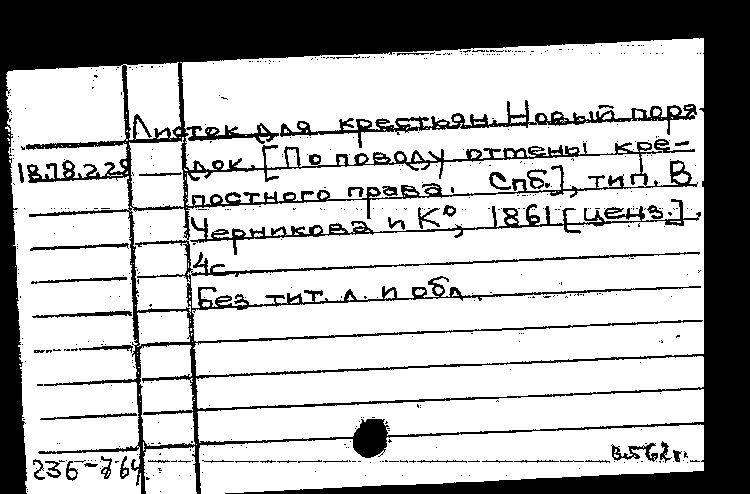 Листок для крестьян. Новый поря-
18.78.2.29 док. [По поводу отмены кре-
постного права. Спб.], тип. В.
Черникова и К°, 1861 [ценз.].
4с.
Без тит. л. и обл.
236-764
в.562г.